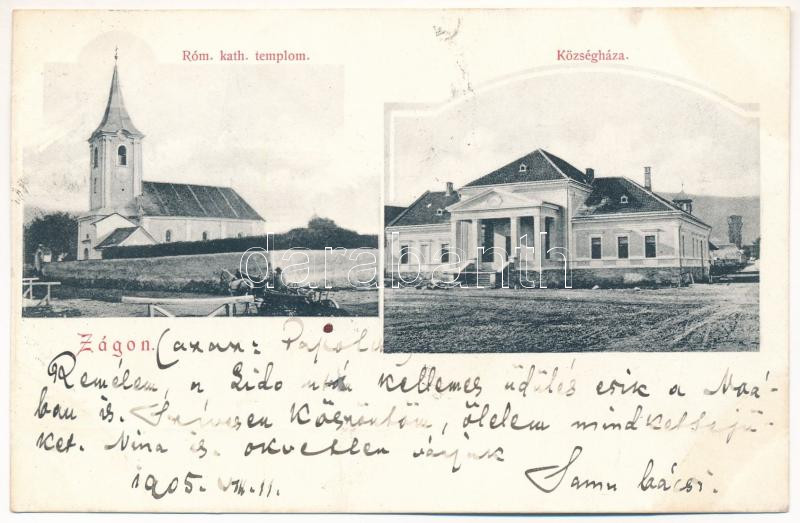 Róm. kath. templom.
Községháza.
darabanth
Zágon.
Remélem, a Lido után kellemes üdülés esik a
ban is. Szívesen köszöntöm, ölelem mindkettőjü-
ket. Nina is. okvetlen várjuk
1905. VIII. 11. Samu bácsi.